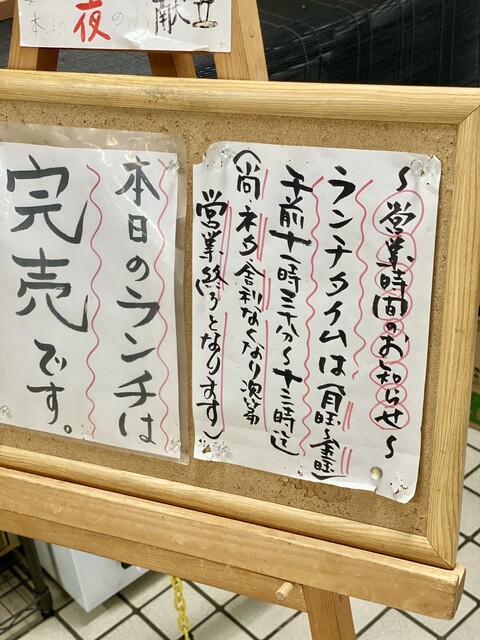 本日の夜の献立
〜営業時間のお知らせ〜
ランチタイムは(月曜〜金曜)
午前十一時三十分〜十三時迄
(尚、ネタ舎利なくなり次第
営業終了となります)
本日のランチは
完売です。